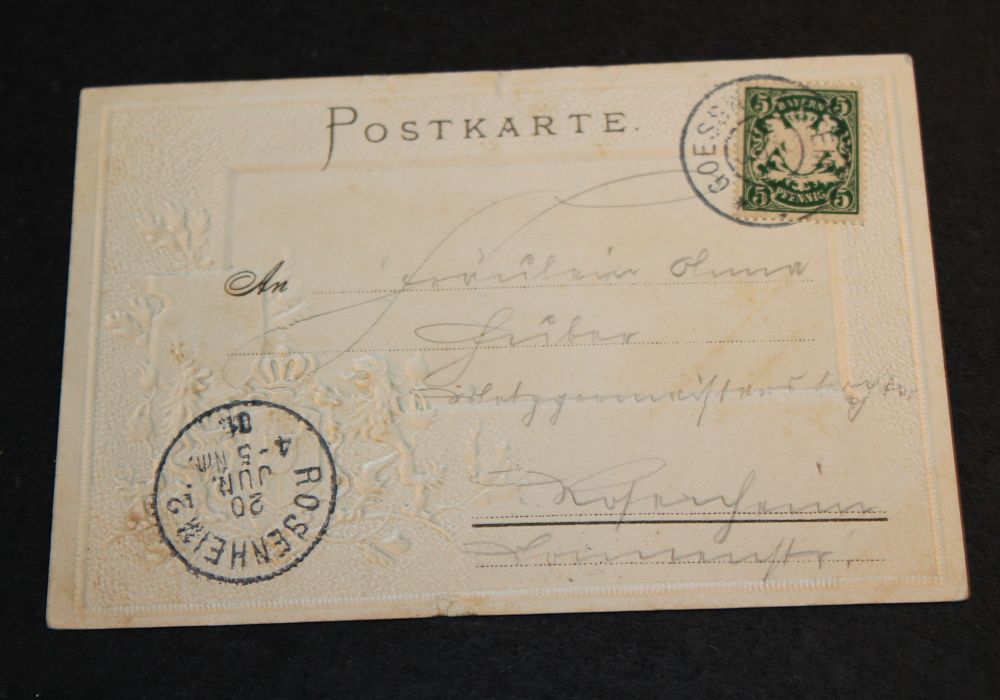 POSTKARTE.
5 BAYERN 5
5 PFENNIG 5
GOESS EN
An Fräulein Anna
Huber
Metzgermeisterstochter
Rosenheim
str.
ROSENHEIM 2.
20
JUN.
4-5 NM.
01